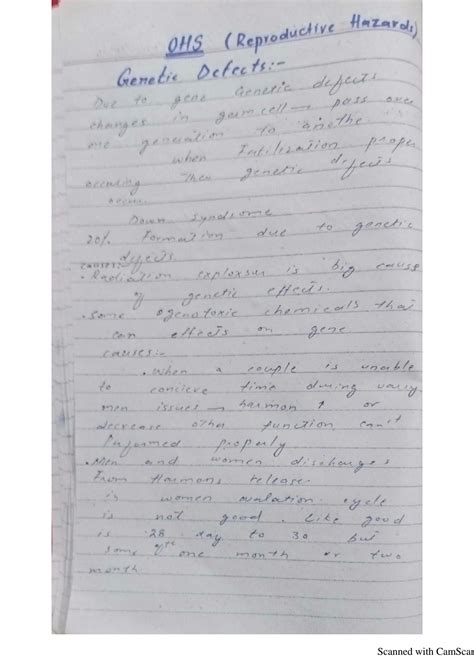 OHS (Reproductive Hazards)
Genetic Defects:-
Due to gene Genetic defects
changes in germcell → pass over
one generation to anothe
when Fatilization proper
occuring then genetic defects
occur.
Down Syndrome
20% Formation due to genetic
defects
causes:-
• Radiation exploxsur is big cause
of genetic effects.
• some genotoxic chemicals that
can effects on gene
causes:-
• When a couple is unable
to concieve time during
men issues → harmon ↑ or
decrease other function can't
properly
• Men and women discharges
from Harmons release.
is women cycle
is not good. Like good
is 28 day to 30 but
some one month or two
month.
Scanned with CamScan